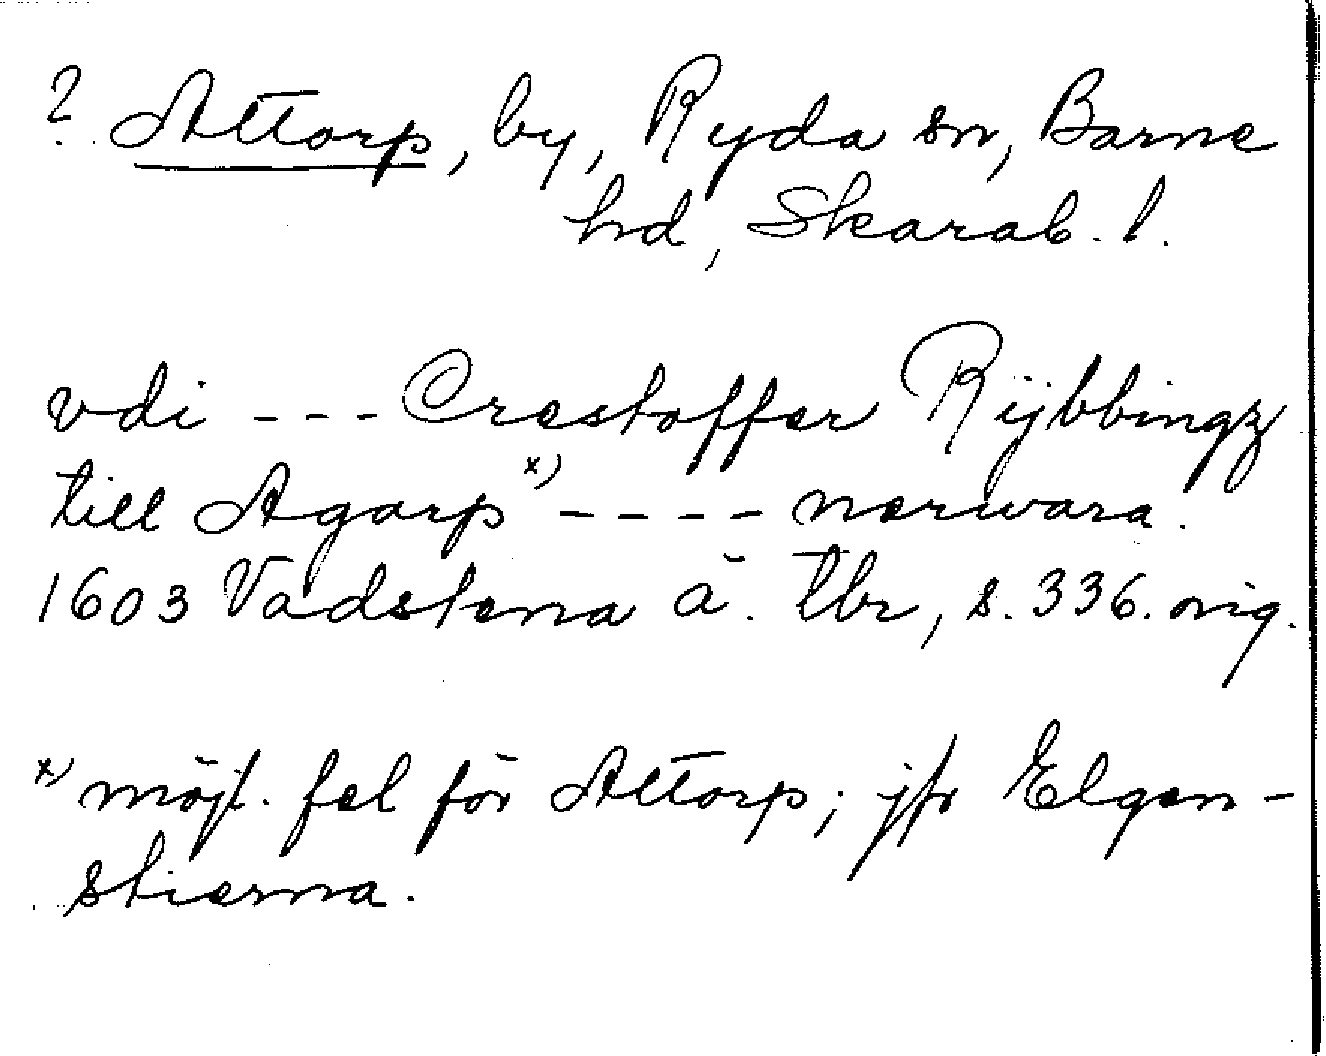 ? Attorp, by, Ryda sn, Barne
hd, Skarab. l.
vdi --- Crestoffer Rijbbingz
till Agarp x) ---- nerwara.
1603 Vadstena ä. tbr, s. 336. orig.
x) möjl. fel för Attorp; jfr Elgen-
stierna.